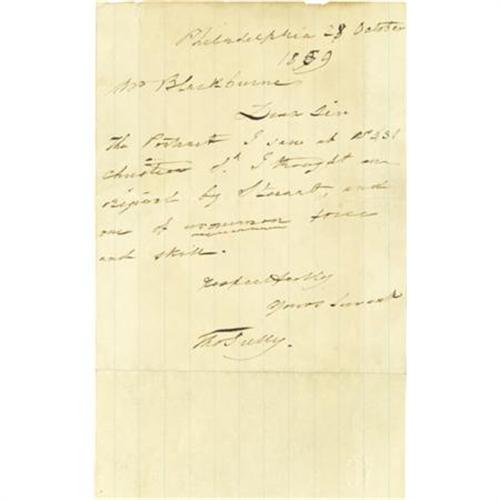 Philadelphia 28 October
1859
Mr Blackburne
Dear Sir
The Portrait I saw at No 431
Christian St. I thought an
original by Stuart, and
one of uncommon force
and skill.
respectfully
Your Servant
Tho Sully.